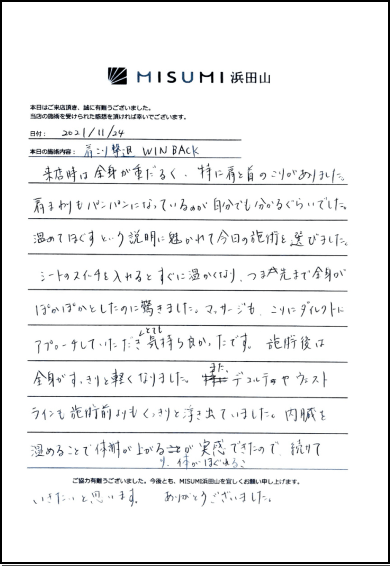 MISUMI 浜田山
本日はご来店頂き、誠に有難うございました。
当店の施術を受けられた感想を頂ければ幸いでございます。
日付： 2021/11/24
本日の施術内容： 肩こり撃退 WINBACK
来店時は全身が重だるく、特に肩と首のこりがありました。
肩まわりもパンパンになっているのが自分でも分かるぐらいでした。
温めてほぐすという説明に魅かれて今回の施術を選びました。
シートのスイッチを入れるとすぐに温かくなり、つま先まで全身が
ぽかぽかとしたのに驚きました。マッサージも、こりにダイレクトに
アプローチしていただきとても気持ち良かったです。施術後は
全身がすっきりと軽くなりました。また、デコルテやウエスト
ラインも施術前よりもくっきりと浮き出ていました。内臓を
温めることで体温が上がり、体がほぐれることが実感できたので、続けて
ご協力有難うございました。今後とも、MISUMI浜田山を宜しくお願い申し上げます。
いきたいと思います。 ありがとうございました。